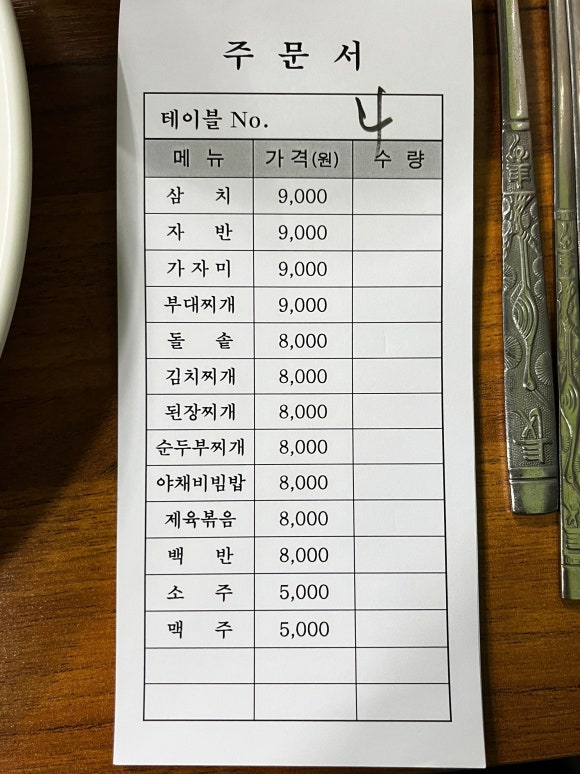 주 문 서
테이블 No. 4
메 뉴 가 격(원) 수 량
삼 치 9,000
자 반 9,000
가 자 미 9,000
부대찌개 9,000
돌 솥 8,000
김치찌개 8,000
된장찌개 8,000
순두부찌개 8,000
야채비빔밥 8,000
제육볶음 8,000
백 반 8,000
소 주 5,000
맥 주 5,000